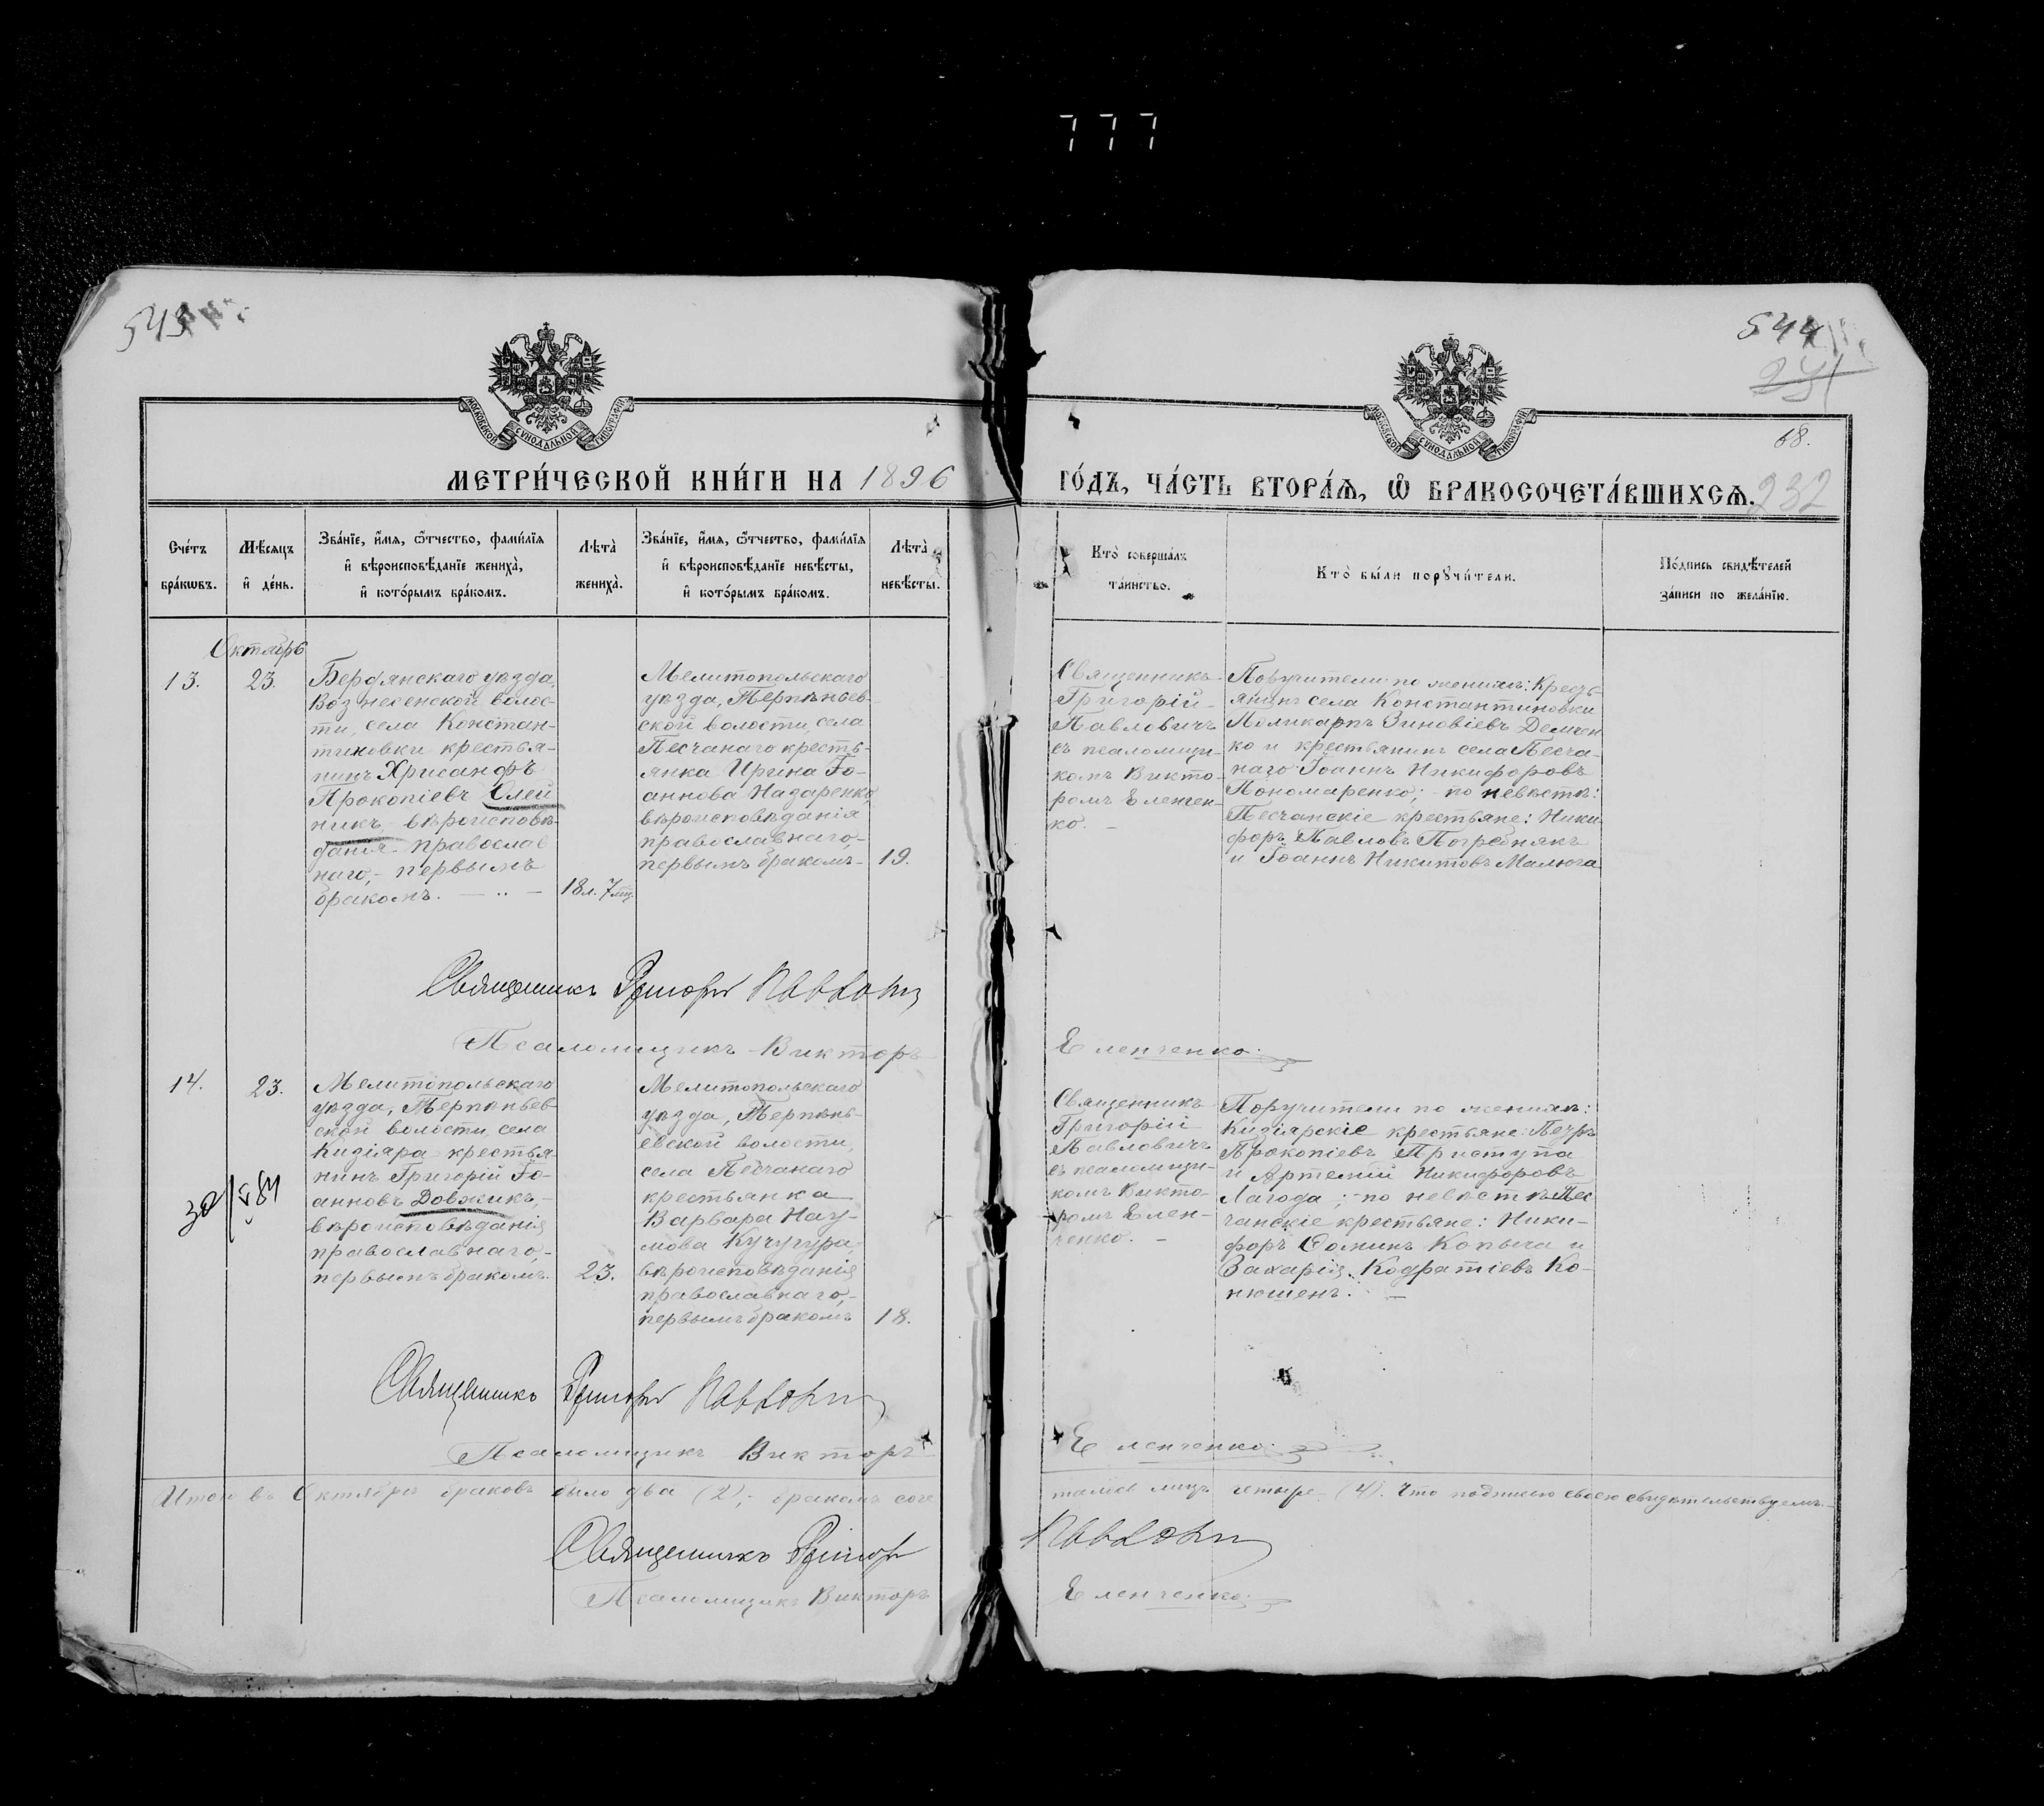 777
543
544
241
МОСКОВСКОЙ СУНОДАЛЬНОЙ ТИПОГРАФІИ
МОСКОВСКОЙ СУНОДАЛЬНОЙ ТИПОГРАФІИ
68.
МЕТРИ́ЧЕСКОЙ КНИ́ГИ НА 1896
ГО́ДЪ, ЧА́СТЬ ВТОРА́Ѧ, Ѽ БРАКОСОЧЕТА́ВШИХСѦ.
232
Сче́тъ
бра́кѡвъ.
Мѣ́сяцъ
и҆ де́нь.
Зва́нїе, и҆́мѧ, ѻ҆́тчество, фамѝлїѧ
и҆ вѣроисповѣ́данїе жениха̀,
и҆ кото́рымъ бра́комъ.
Лѣта̀
жениха̀.
Зва́нїе, и҆́мѧ, ѻ҆́тчество, фамѝлїѧ
и҆ вѣроисповѣ́данїе невѣ́сты,
и҆ кото́рымъ бра́комъ.
Лѣта̀
невѣ́сты.
Кто̀ соверша́лъ
та́инство.
Кто̀ бы́ли порꙋчи́тели.
По́дпись свидѣ́телей
за́писи по жела́нїю.
Октябрь
13.
23.
Бердянскаго уѣзда,
Вознесенской волос-
ти, села Констан-
тиновки крестья-
нинъ Хрисанфъ
Прокопіевъ Олей
никъ, вѣроисповѣ-
данія православ
наго,- первымъ
бракомъ. — .. —
18л. 7мц.
Мелитопольскаго
уѣзда, Терпѣньев-
ской волости, села
Песчанаго кресть-
янка Ирина Іо-
аннова Назаренко,
вѣроисповѣданія
православнаго,-
первымъ бракомъ-
19.
Священникъ
Григорій
Павловичъ
съ псаломщи-
комъ Викто-
ромъ Еленчен-
ко. —
Поручители по женихѣ: Кресть-
янинъ села Константиновки
Поликарпъ Зиновіевъ Демчен
ко и крестьянинъ села Песча-
наго Іоаннъ Никифоровъ
Пономаренко; - по невѣстѣ:
Песчанскіе крестьяне: Ники-
форъ Павловъ Погребнякъ
и Іоаннъ Никитовъ Малюга
Священникъ Григорій Павловичъ
Псаломщикъ Викторъ Еленченко.
14.
23.
Мелитопольскаго
уѣзда, Терпѣньев-
ской волости села
Кизіяра крестья
нинъ Григорій Іо-
анновъ Довжикъ,-
вѣроисповѣданія
православнаго,-
первымъ бракомъ.
23.
Мелитопольскаго
уѣзда, Терпѣнь-
евской волости,
села Песчанаго
крестьянка
Варвара Нау-
мова Кучугура,
вѣроисповѣданія
православнаго,-
первымъ бракомъ
18.
Священникъ
Григорій
Павловичъ
съ псаломщи-
комъ Викто-
ромъ Елен-
ченко. —
Поручители по женихѣ:
Кизіярскіе крестьяне: Петръ
Прокопіевъ Приступа
и Артемій Никифоровъ
Лагода; - по невѣстѣ Пес
чанскіе крестьяне: Ники-
форъ Ѳоминъ Копыча и
Захарій Кодратіевъ Ко-
нюшенъ. —
Священникъ Григорій Павловичъ
Псаломщикъ Викторъ Еленченко.
Итого въ Октябрѣ браковъ было два (2),- бракомъ соче
талось лицъ четыре (4). Что подписью своею свидѣтельствуемъ.-
Священникъ Григор Павловичъ
Псаломщикъ Викторъ Еленченко.